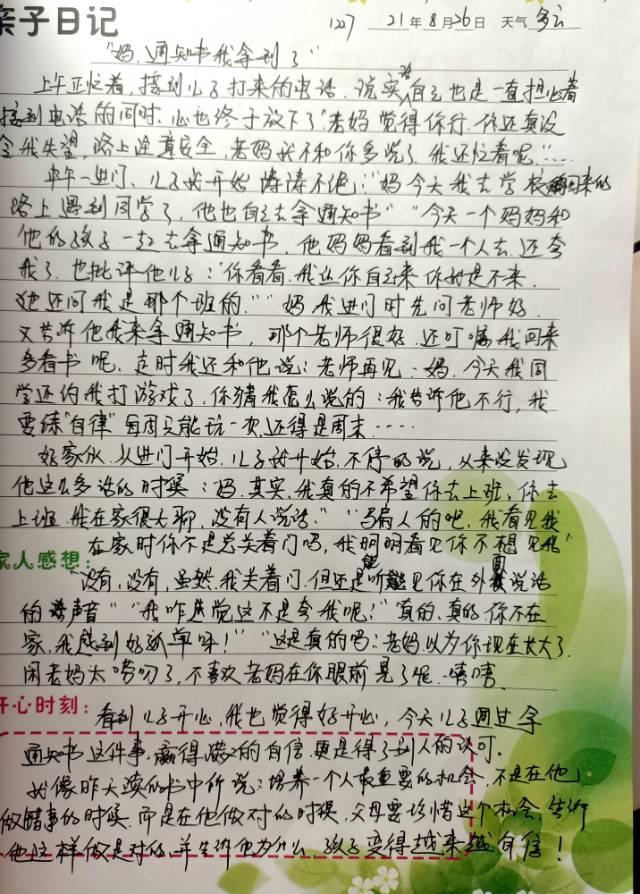 亲子日记 127 21年8月26日 天气 多云
"妈,通知书我拿到了"
上午正忙着,接到儿子打来的电话,说实话自己也是一直担心着
接到电话的同时,心也终于放下了"老妈觉得你行,你还真没
令我失望,路上注意安全,老妈我不和你多说了,我还忙着呢"……
中午一进门,儿子就开始滔滔不绝:"妈今天我去学校回来的
路上遇到同学了,他也自己去拿通知书""今天一个妈妈和
他的孩子一起去拿通知书,他妈妈看到我一个人去,还夸
我了,也批评他儿子:'你看看,我让你自己来你就是不来,
她还问我是那个班的。""妈我进门时先问老师好,
又告诉他我来拿通知书,那个老师很好,还叮嘱我回来
多看书呢,走时我还和他说:老师再见、妈,今天我同
学还约我打游戏了,你猜我怎么说的:我告诉他不行,我
要练"自律"每周只能玩一次,还得是周末……
好家伙,从进门开始,儿子就开始,不停的说,从来没发现
他这么多话的时候:"妈,其实,我真的不希望你去上班,你去
上班,我在家很无聊,没有人说话。""骗人的吧,我看见我
在家时你不是总关着门吗,我明明看见你不想见我"
家人感想:
"没有,没有,虽然,我关着门,但还是能听见你在外面说话
的声音""我咋感觉这不是夸我呢!""真的,真的,你不在
家,我感到好孤单呀!""这是真的吗:老妈以为你现在长大了,
闲老妈太唠叨了,不喜欢老妈在你眼前晃了呢,嘻嘻
开心时刻:看到儿子开心,我也觉得好开心,今天儿子通过拿
通知书这件事,赢得满满的自信,更是得了别人的认可。
就像昨天读的书中所说:培养一个人最重要的机会,不是在他
做错事的时候,而是在他做对的时候,父母要珍惜这个机会,告诉
他这样做是对的,并告诉他为什么,孩子变得越来越自信!